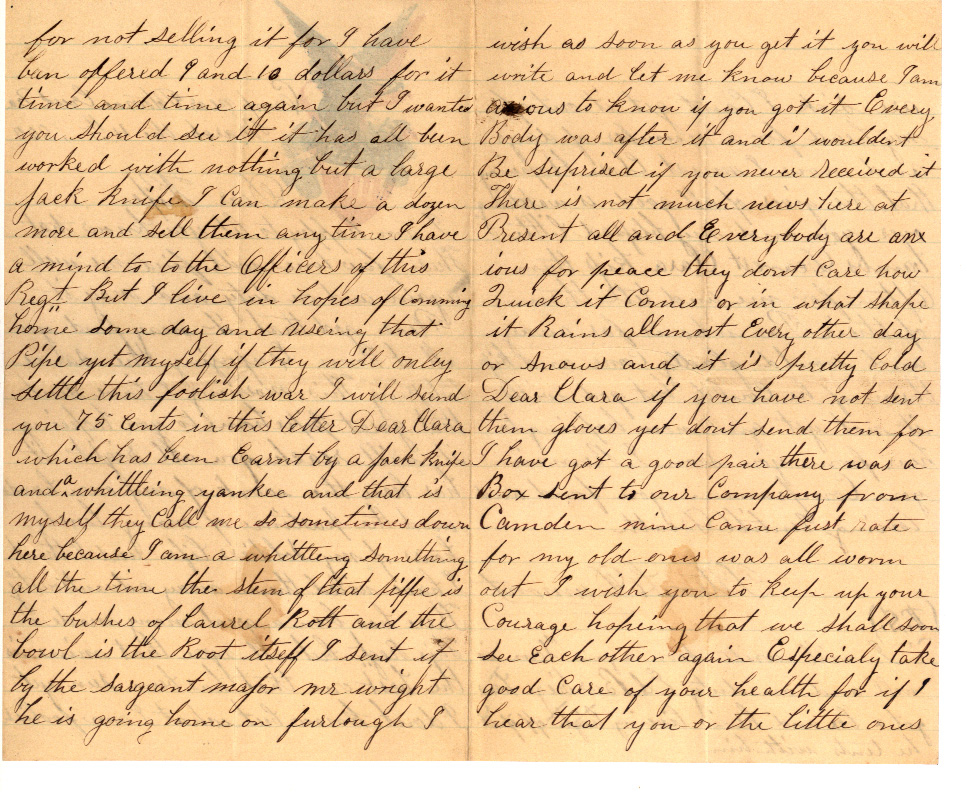 for not selling it for I have
ben offered 9 and 10 dollars for it
time and time again but I wanted
you should see it it has all ben
worked with nothing but a large
jack knife I can make a dozen
more and sell them any time I have
a mind to to the Officers of this
Regt. But I live in hopes of Comming
home some day and useing that
Pipe yet myself if they will onley
settle this foolish war I will send
you 75 cents in this letter Dear Clara
which has been Earnt by a jack knife
and a whittleing yankee and that is
myself they Call me so sometimes down
here because I am a whittleng something
all the time the stem of that pifpe is
the bushes of Laurel Rott and the
bowl is the Root itself I sent it
by the sargeant major mr wright
he is going home on furlough I
wish as soon as you get it you will
write and let me know because I am
anxious to know if you got it Every
Body was after it and i wouldent
Be suprised if you never received it
There is not much news here at
Present all and Everybody are anx
ious for peace they dont Care how
Quick it Comes or in what shape
it Rains allmost Every other day
or snows and it is pretty Cold
Dear Clara if you have not sent
them gloves yet dont send them for
I have got a good pair there was a
Box sent to our Company from
Camden mine Came fust rate
for my old ones was all worn
out I wish you to keep up your
Courage hopeing that we shall soon
see Each other again Especialy take
good Care of your health for if I
hear that you or the little ones